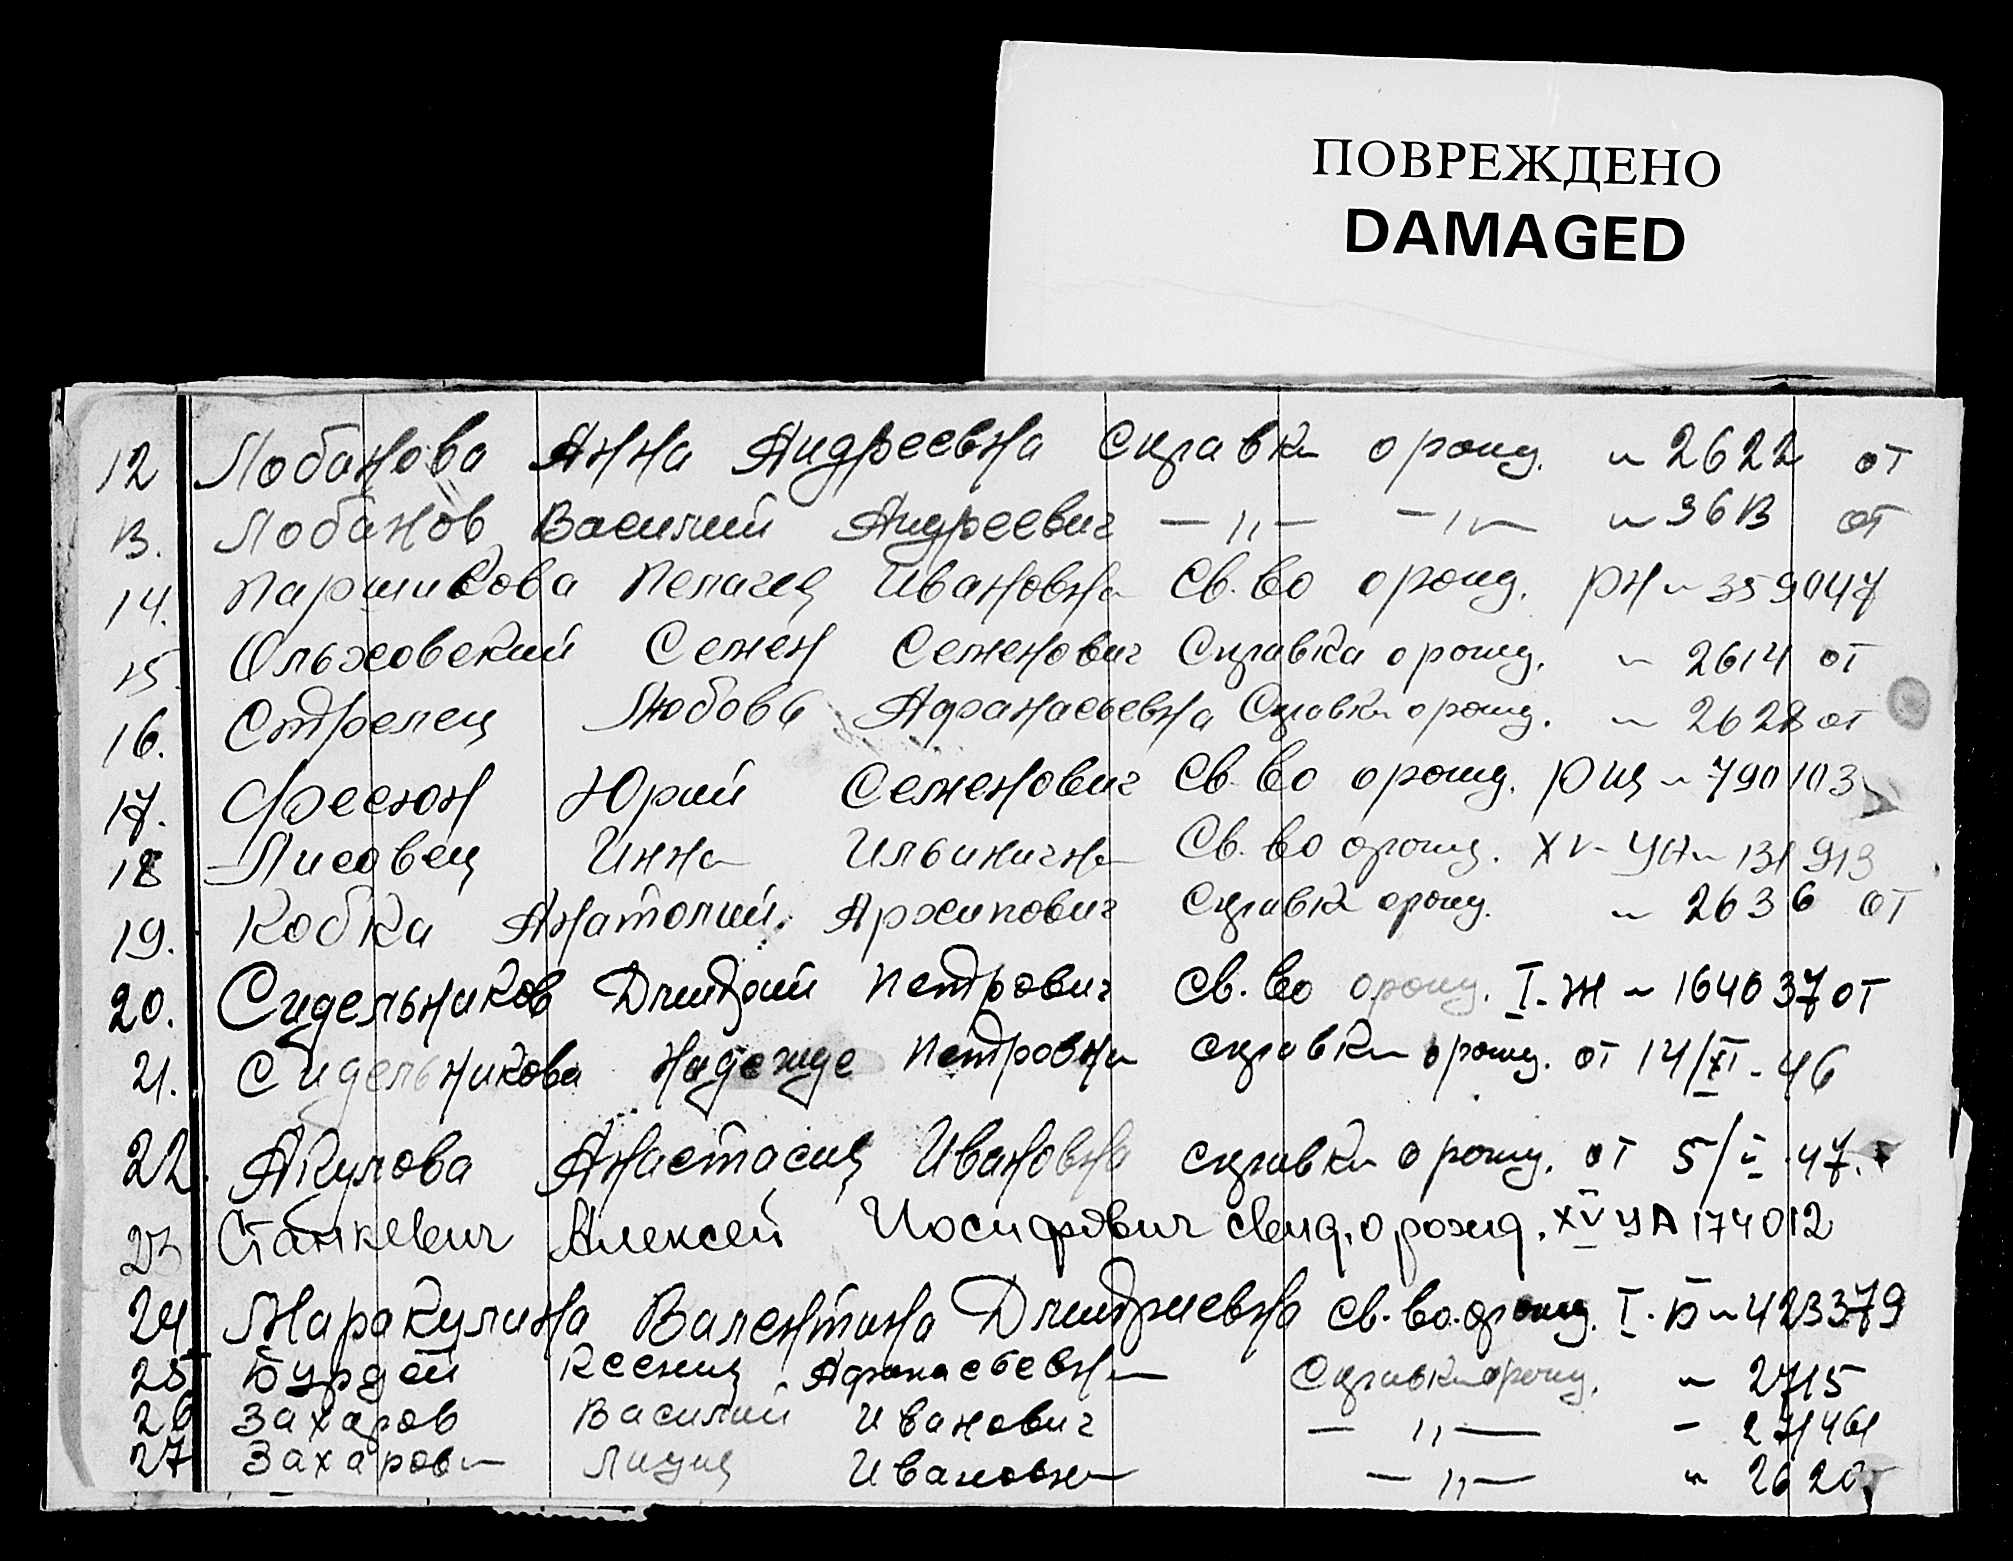 ПОВРЕЖДЕНО
DAMAGED
12 Лобанова Анна Андреевна Справка о рожд. № 2622 от
13. Лобанов Василий Андреевич — " — — " — № 3613 от
14. Паршикова Пелагея Ивановна Св.во о рожд. РН № 359047
15. Ольховский Семен Семенович Справка о рожд. № 2614 от
16. Стрелец Любовь Афанасьевна Справка о рожд. № 2628 от
17. Фесюн Юрий Семенович Св.во о рожд. РЩ № 790103
18 Лисовец Инна Ильинична Св.во о рожд. XV-УА № 131913
19. Кобка Анатолий Архипович Справка о рожд. № 2636 от
20. Сидельников Дмитрий Петрович Св.во о рожд. I-Ж № 164037 от
21. Сидельникова Надежде Петровна Справка о рожд. от 14/XI-46
22. Акулова Анастасия Ивановна справка о рожд. от 5/I-47.
23 Станкевич Алексей Иосифович свид. о рожд. XV УА 174012
24 Маракулина Валентина Дмитриевна Св.во о рожд. I-Б № 423379
25 Бурдей Ксения Афанасьевна Справка о рожд. № 2715
26 Захаров Василий Иванович — " —
27 Захарова Лидия Ивановна — " — № 2620